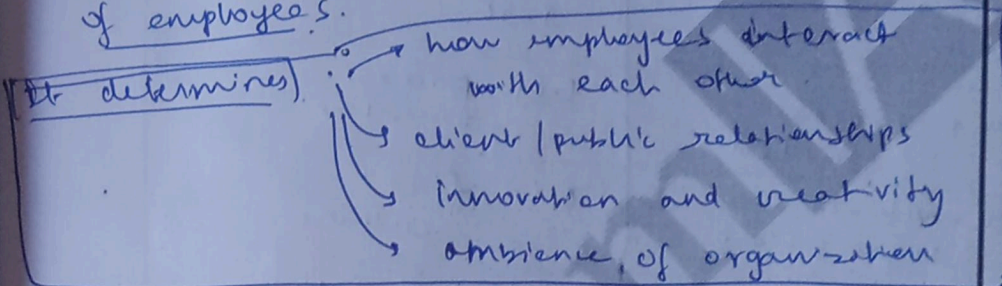 of employees.
how employees interact
(It determines) with each other
client/public relationships
innovation and creativity
ambience of organization